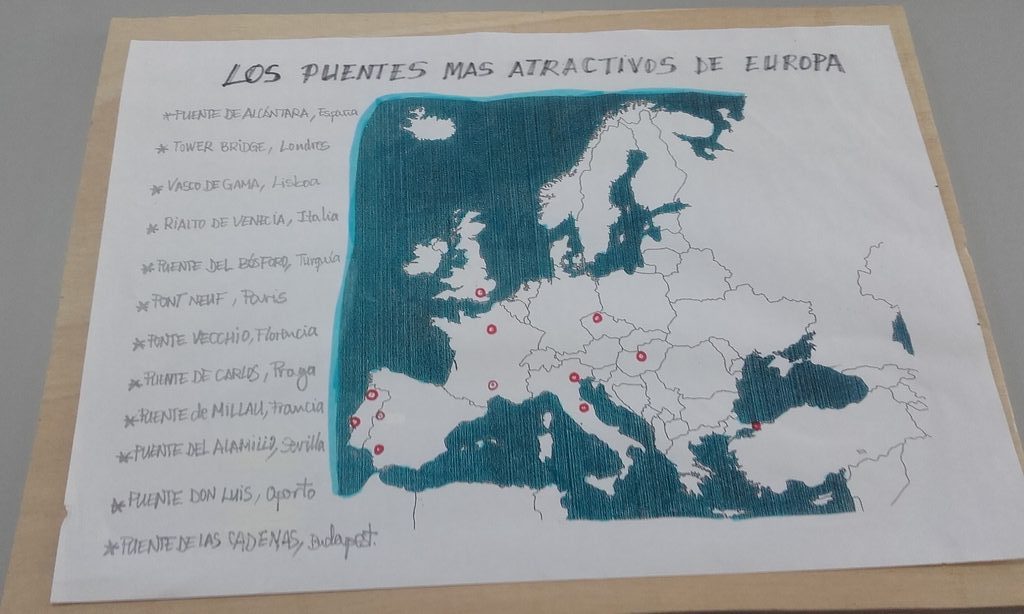 LOS PUENTES MAS ATRACTIVOS DE EUROPA
* PUENTE DE ALCÁNTARA, España
* TOWER BRIDGE, Londres
* VASCO DE GAMA, Lisboa
* RIALTO DE VENECIA, Italia
* PUENTE DEL BÓSFORO, Turquía
* PONT NEUF, París
* PONTE VECCHIO, Florencia
* PUENTE DE CARLOS, Praga
* PUENTE de MILLAU, Francia
* PUENTE DEL ALAMILLO, Sevilla
* PUENTE DON LUIS, Oporto
* PUENTE DE LAS CADENAS, Budapest.